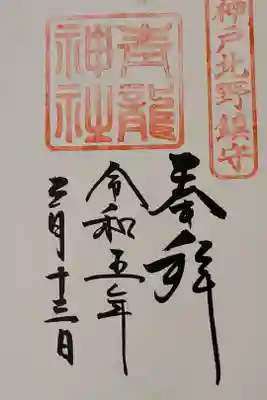 神戸北野鎮守
青龍
神社
奉拝
令和五年
三月十三日